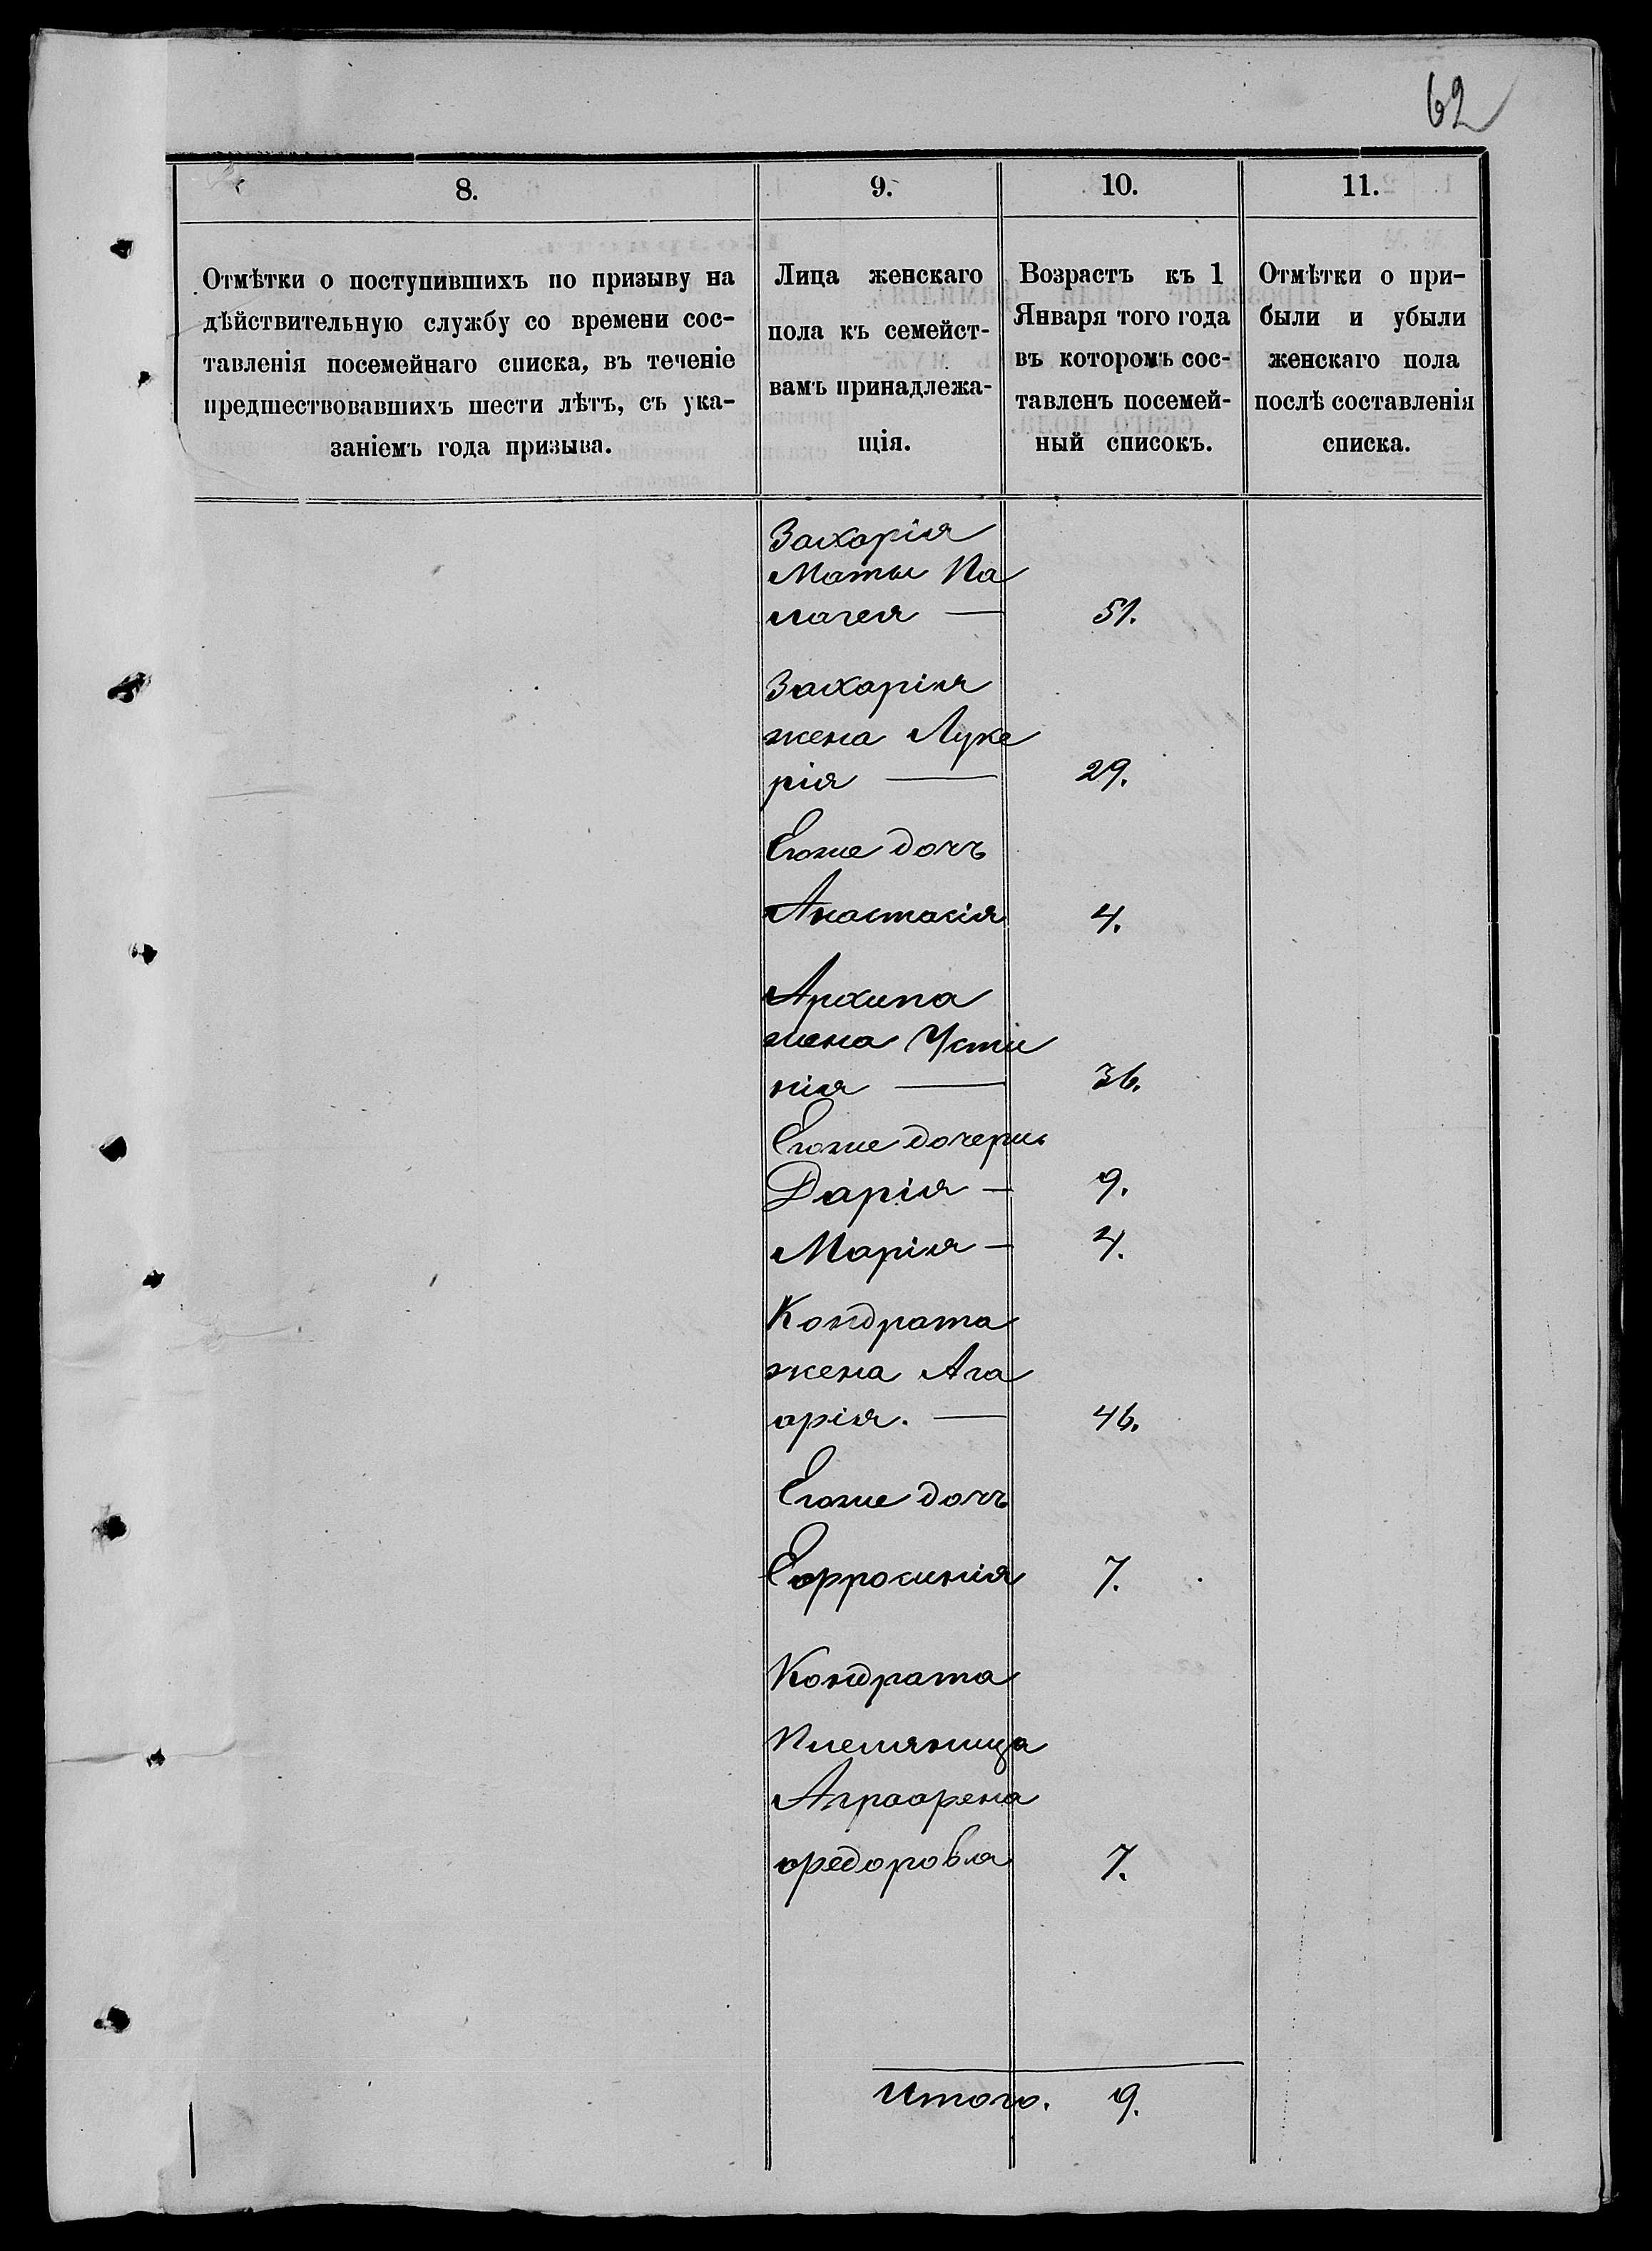 62
8.
9.
10.
11.
Отмѣтки о поступившихъ по призыву на
дѣйствительную службу со времени сос-
тавленія посемейнаго списка, въ теченіе
предшествовавшихъ шести лѣтъ, съ ука-
заніемъ года призыва.
Лица женскаго
пола къ семейст-
вамъ принадлежа-
щія.
Возрастъ къ 1
Января того года
въ которомъ сос-
тавленъ посемей-
ный списокъ.
Отмѣтки о при-
были и убыли
женскаго пола
послѣ составленія
списка.
Захарія
Моты Па
лагея — 51.
Захарія
жена Луке
рія — 29.
Егоже дочъ
Анастасія 4.
Архипа
жена Усти
нія — 36.
Егоже дочери
Дарія — 9.
Марія — 4.
Кондрата
жена Ага
фія. — 46.
Егоже дочъ
Ефросинія 7.
Кондрата
Племяница
Аграфена
федоровна 7.
Итого. 9.